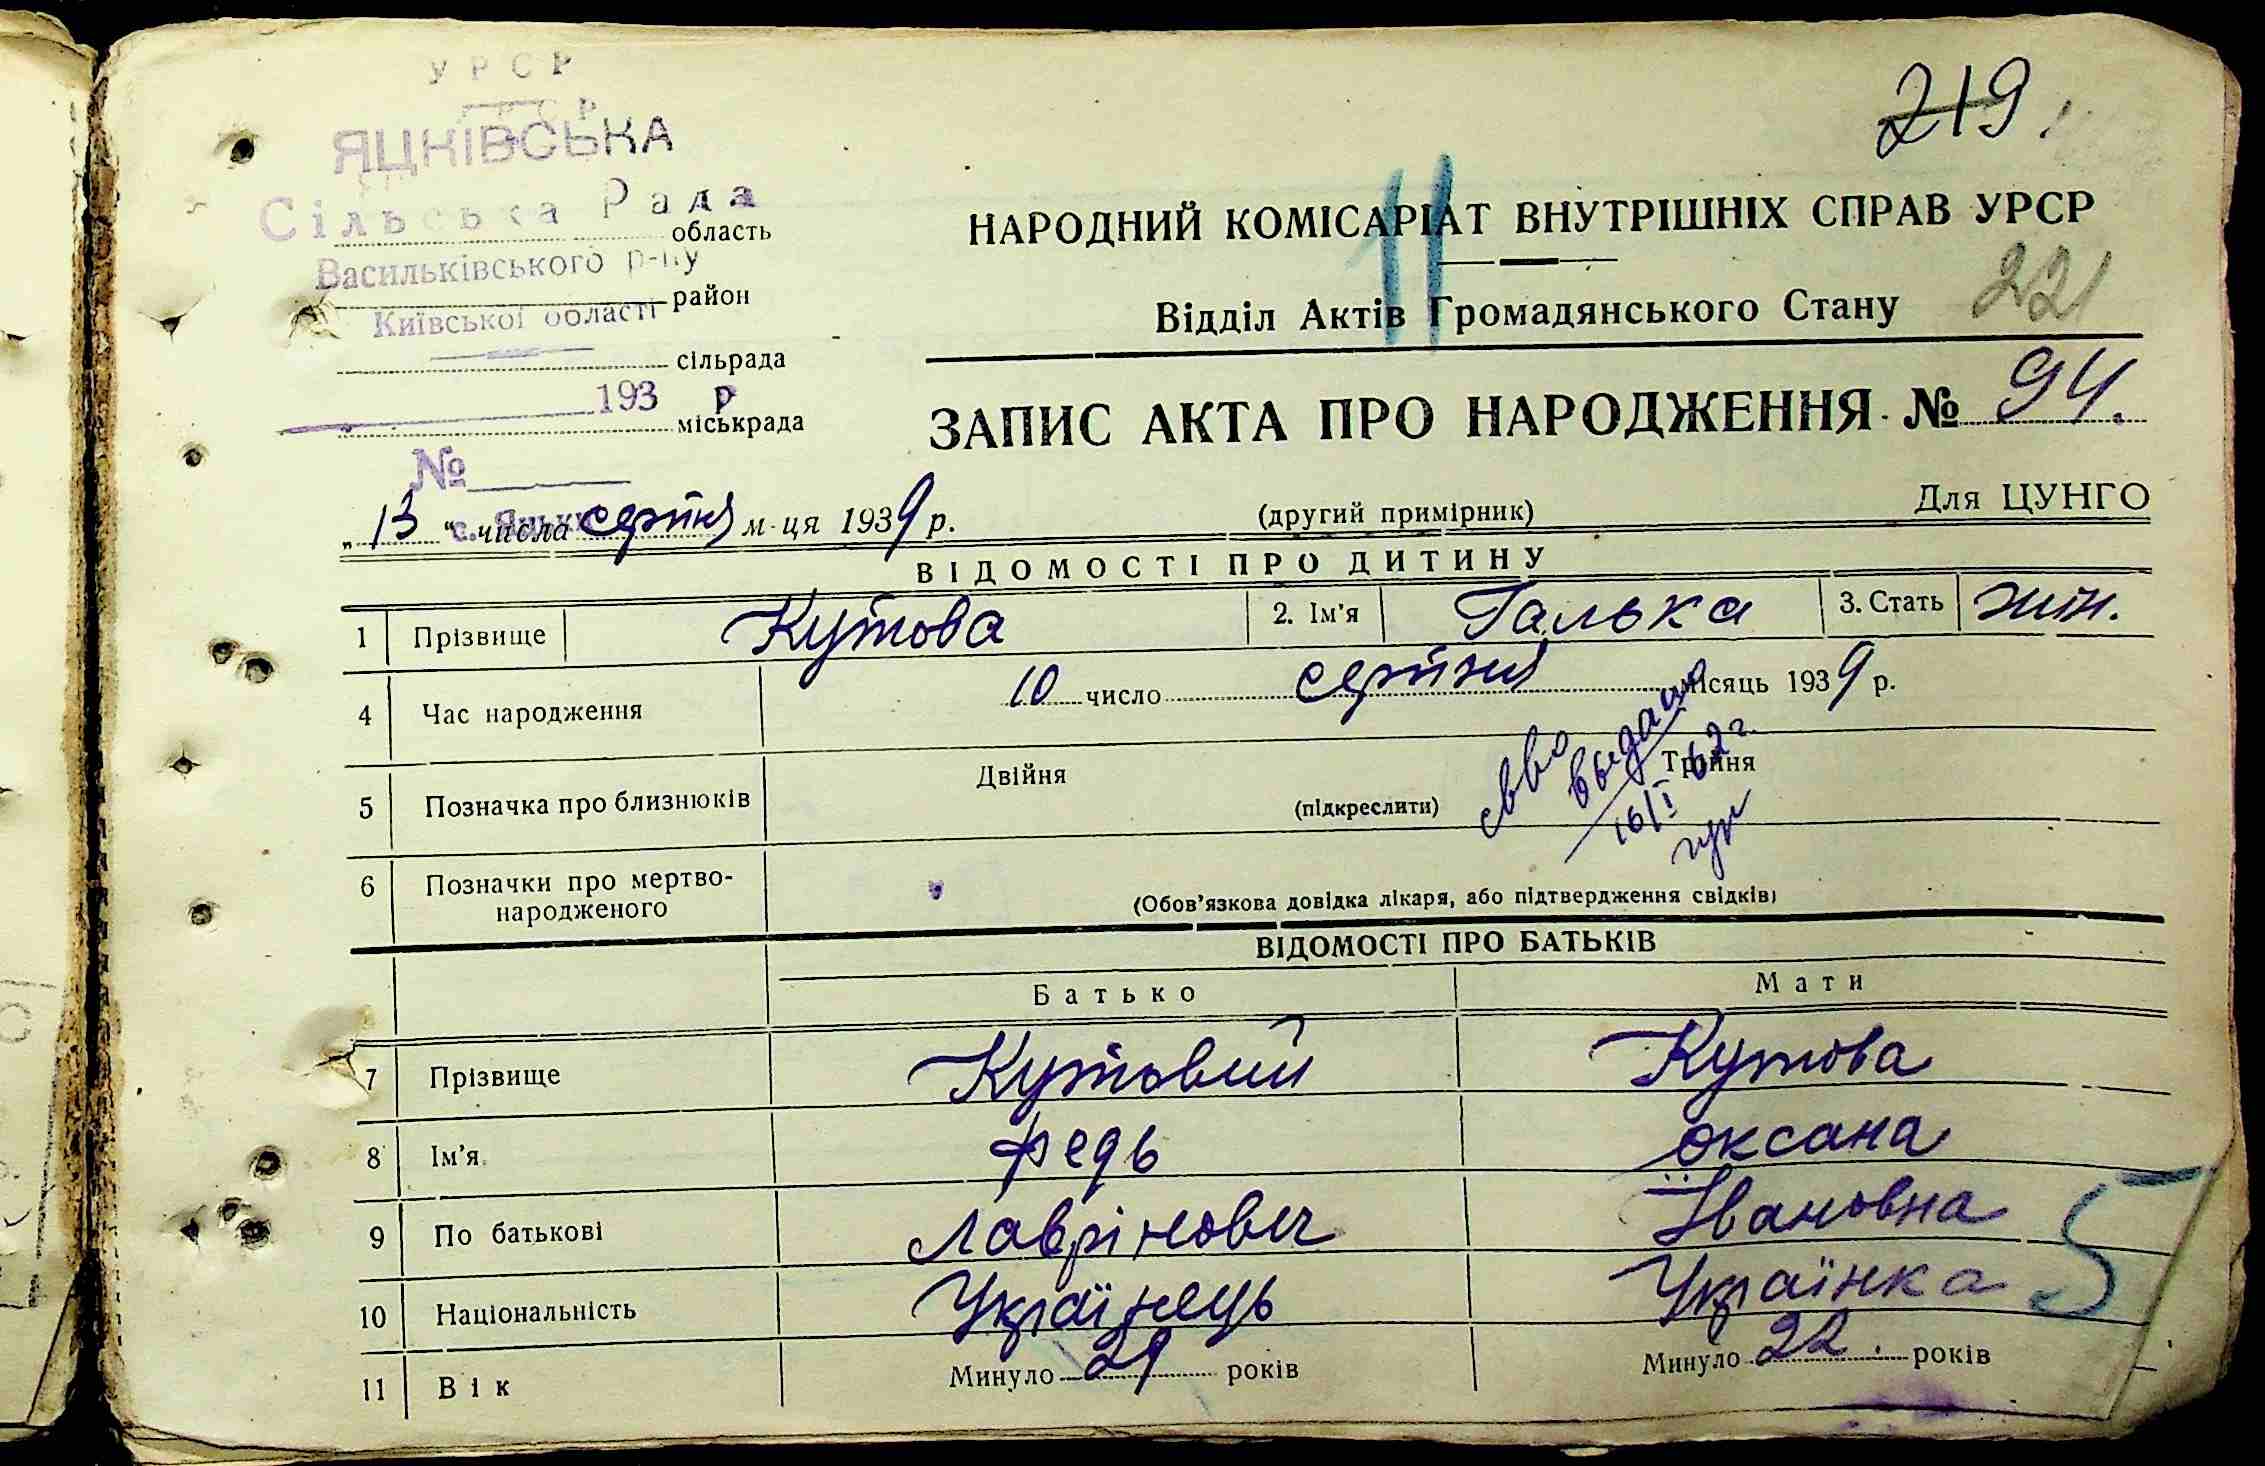 219
УРСР
ЯЦКІВСЬКА
Сільська Рада
область
Васильківського р-ну
район
Київської області
сільрада
193 р
міськрада
№
с. Яцьки
НАРОДНИЙ КОМІСАРІАТ ВНУТРІШНІХ СПРАВ УРСР
11
221
Відділ Актів Громадянського Стану
ЗАПИС АКТА ПРО НАРОДЖЕННЯ № 94.
„13" числа серпня м-ця 1939 р.
(другий примірник)
Для ЦУНГО
ВІДОМОСТІ ПРО ДИТИНУ
1 Прізвище Кутова 2. Ім'я Галька 3. Стать жін.
4 Час народження 10 число серпня місяць 1939 р.
5 Позначка про близнюків Двійня (підкреслити) Трійня
свво выдано
16/I 62 г.
6 Позначки про мертвонародженого (Обов'язкова довідка лікаря, або підтвердження свідків)
ВІДОМОСТІ ПРО БАТЬКІВ
Батько Мати
7 Прізвище Кутовий Кутова
8 Ім'я Федь Оксана
9 По батькові Лаврінович Івановна
5
10 Національність Українець Українка
11 Вік Минуло 29 років Минуло 22. років